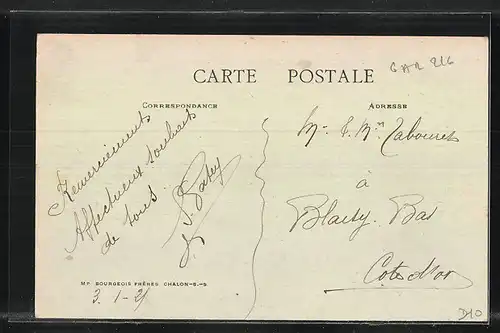 GAR 216
CARTE POSTALE
CORRESPONDANCE
ADRESSE
Remerciements
Affectueux souhaits
de tous.
Mr & Mme Tabouret
à
Blaisy-Bas
Côte d'or
MP BOURGEOIS FRÈRES CHALON-S-S
3-1-21
D10